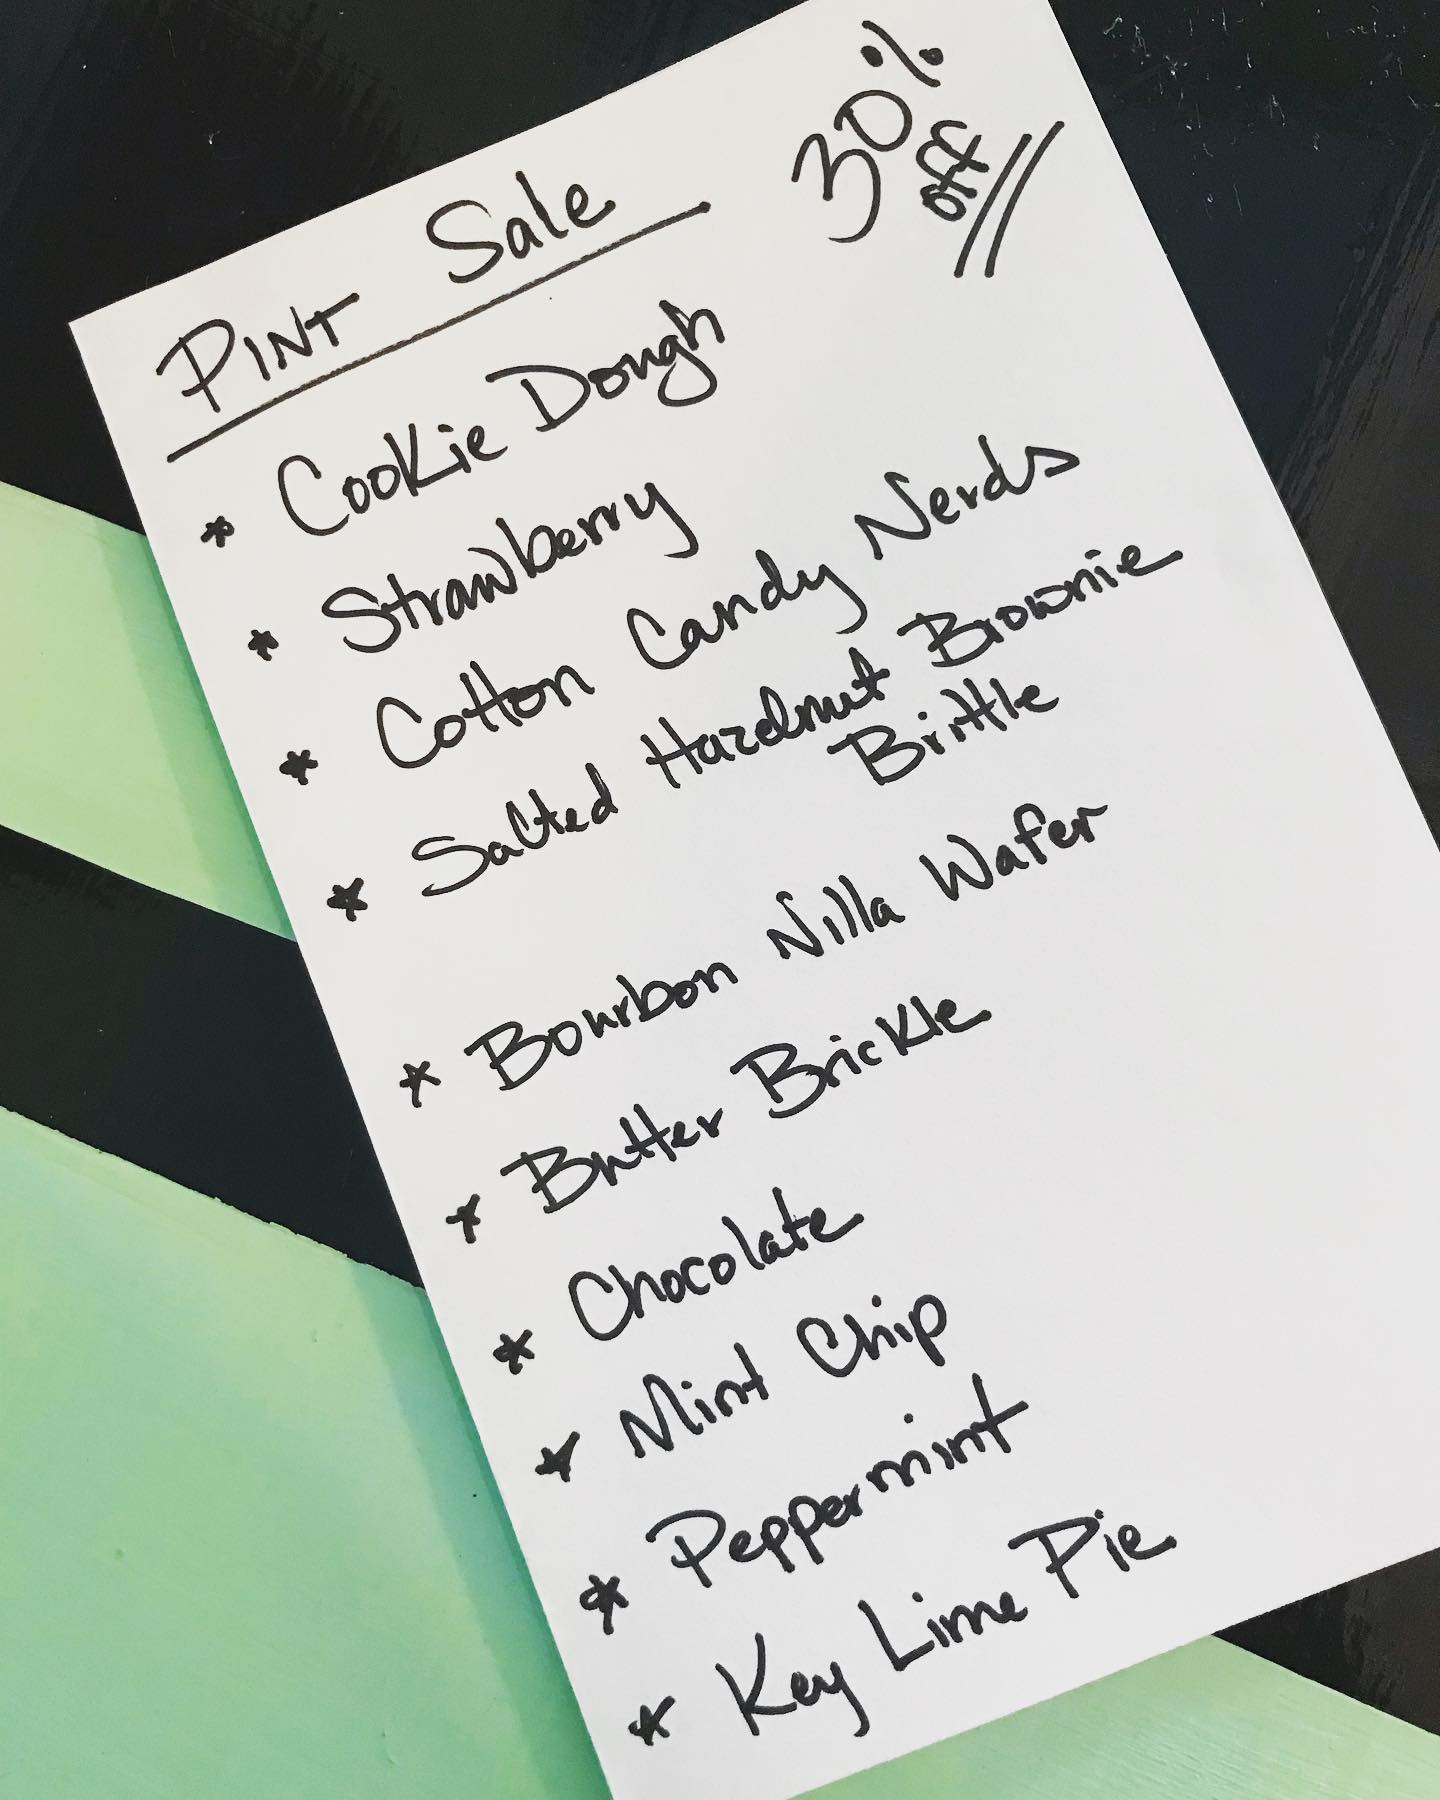 Pint Sale
30%
off
* Cookie Dough
* Strawberry
* Cotton Candy Nerds
* Salted Hazelnut Brownie
Brittle
* Bourbon Nilla Wafer
* Butter Brickle
* Chocolate
* Mint Chip
* Peppermint
* Key Lime Pie